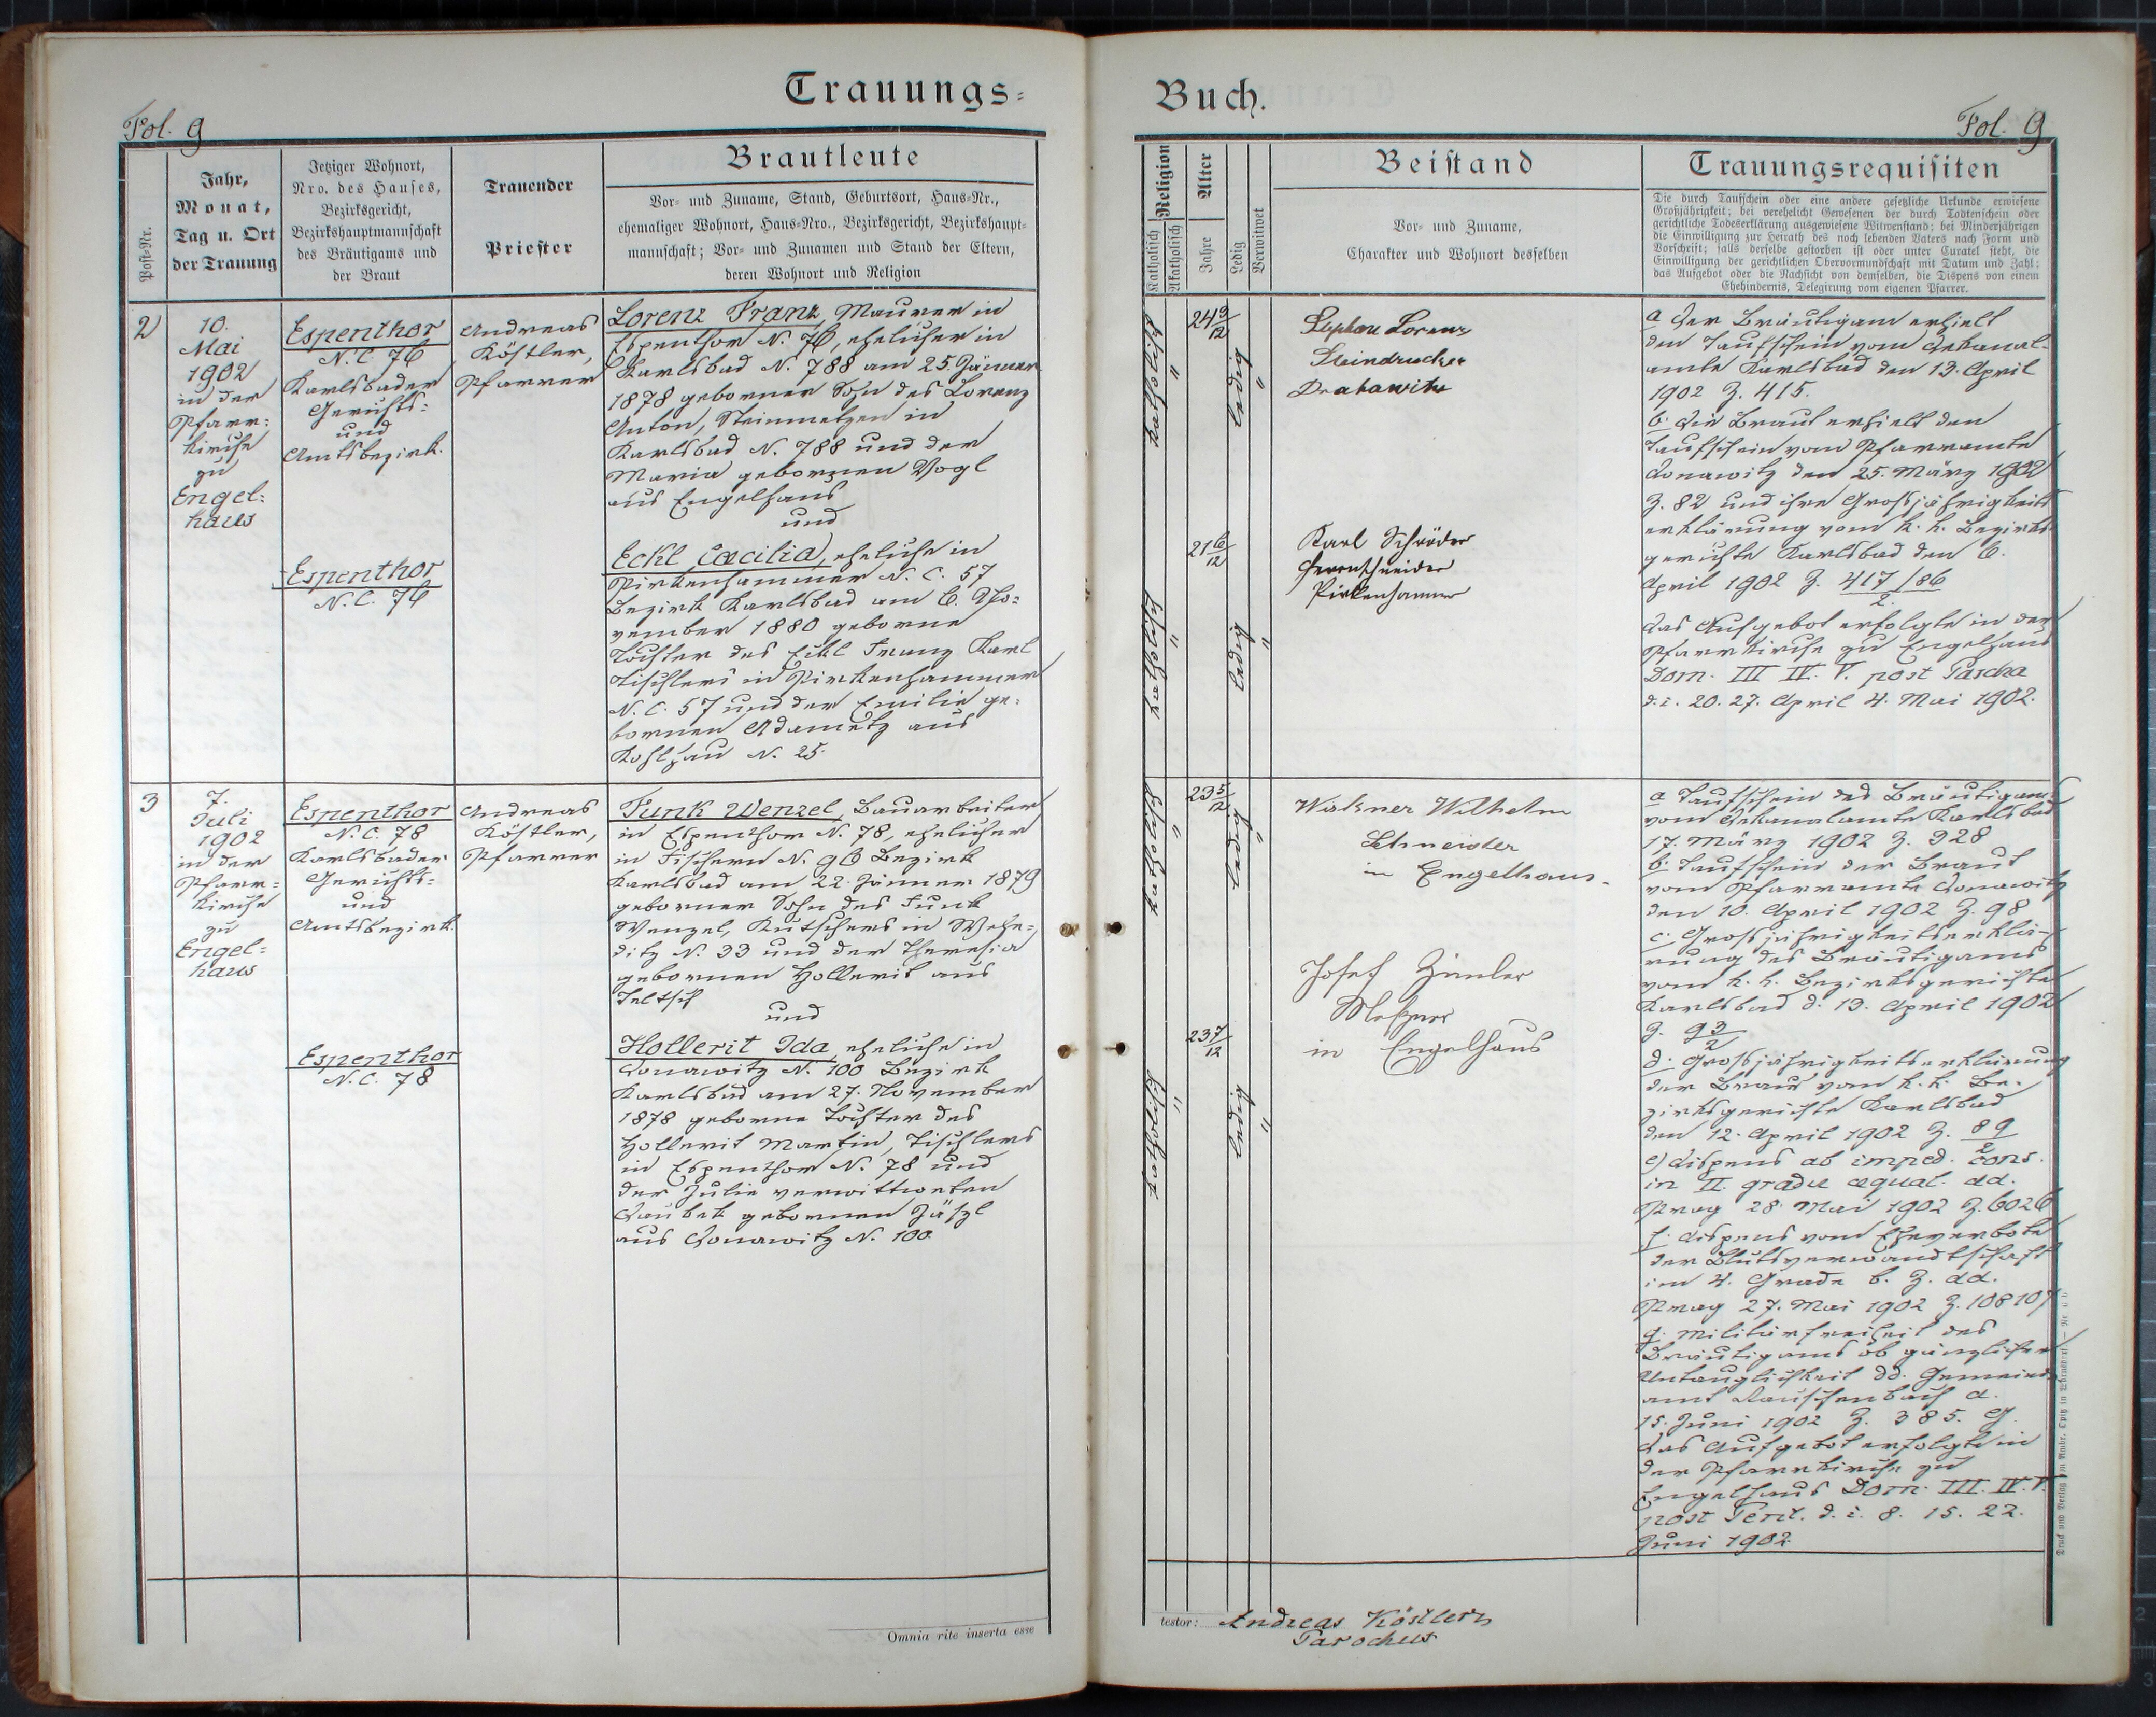 Trauungs=
Fol. 9
Post-Nr.
Jahr,
Monat,
Tag u. Ort
der Trauung
Jetziger Wohnort,
Nro. des Hauses,
Bezirksgericht,
Bezirkshauptmannschaft
des Bräutigams und
der Braut
Trauender
Priester
Brautleute
Vor- und Zuname, Stand, Geburtsort, Haus-Nr.,
ehemaliger Wohnort, Haus-Nro., Bezirksgericht, Bezirkshaupt-
mannschaft; Vor- und Zunamen und Stand der Eltern,
deren Wohnort und Religion
2
10.
Mai
1902
in der
Pfarr-
kirche
zu
Engel-
haus
Espenthor
N. C. 76
Karlsbader
Gerichts-
und
Amtsbezirk.
Espenthor
N. C. 76
Andreas
Köstler,
Pfarrer
Lorenz Franz, Maurer in
Espenthor N. 76, ehelicher in
Karlsbad N. 788 am 25. Jänner
1878 geborner Sohn des Lorenz
Anton, Steinmetzen in
Karlsbad N. 788 und der
Maria gebornen Vogl
aus Engelhaus
und
Eckl Cæcilia, eheliche in
Pirkenhammer N. C. 57
Bezirk Karlsbad am 6. No-
vember 1880 geborne
Tochter des Eckl Franz Karl
Tischlers in Pirkenhammer
N. C. 57 und der Emilie ge-
bornen Adametz aus
Kohlhau N. 25.
3
7.
Juli
1902
in der
Pfarr-
kirche
zu
Engel-
haus
Espenthor
N. C. 78
Karlsbader
Gerichts-
und
Amtsbezirk.
Espenthor
N. C. 78
Andreas
Köstler,
Pfarrer
Funk Wenzel, Bauarbeiter
in Espenthor N. 78, ehelicher
in Fischern N. 96 Bezirk
Karlsbad am 22. Jänner 1879
geborner Sohn des Funk
Wenzel, Kutschers in Wehe-
ditz N. 33 und der Theresia
gebornen Hollerit aus
Teltsch
und
Hollerit Ida, eheliche in
Donawitz N. 100 Bezirk
Karlsbad am 27. November
1878 geborne Tochter des
Hollerit Martin, Tischlers
in Espenthor N. 78 und
der Julie verwittweten
Daubek gebornen
aus Donawitz N. 100.
Omnia rite inserta esse
Buch.
Fol. 9
Religion
Katholisch
Akatholisch
Alter
Jahre
Ledig
Verwitwet
Beistand
Vor- und Zuname,
Charakter und Wohnort desselben
Trauungsrequisiten
Die durch Taufschein oder eine andere gesetzliche Urkunde erwiesene
Großjährigkeit; bei verehelicht Gewesenen der durch Todtenschein oder
gerichtliche Todeserklärung ausgewiesene Witwenstand; bei Minderjährigen
die Einwilligung zur Heirath des noch lebenden Vaters nach Form und
Vorschrift; falls derselbe gestorben ist oder unter Curatel steht, die
Einwilligung der gerichtlichen Obervormundschaft mit Datum und Zahl;
das Aufgebot oder die Nachsicht von demselben, die Dispens von einem
Ehehindernis, Delegirung vom eigenen Pfarrer.
katholisch
"
24 3/12
ledig
"
Stephan Lorenz
Steindrucker
Drahowitz
katholisch
"
21 6/12
ledig
"
Karl Schröder
Herrnschneider
Pirkenhammer
a Der Bräutigam erhielt
den Taufschein vom Dekanal-
amte Karlsbad den 13. April
1902 Z. 415.
b. Die Braut erhielt den
Taufschein vom Pfarramte
Donawitz den 25. März 1902
Z. 82 und ihre Grossjährigkeits
erklärung vom k. k. Bezirks-
gerichte Karlsbad den 6.
April 1902 Z. 417/86
2.
Das Aufgebot erfolgte in der
Pfarrkirche zu Engelhaus
Dom. III IV. V. post Pascha
d. i. 20. 27. April 4. Mai 1902.
katholisch
"
23 5/12
ledig
"
Wilhelm
Schneider
in Engelhaus.
katholisch
"
23 7/12
ledig
"
Josef
Meßner
in Engelhaus
a Taufschein des Bräutigams
vom Dekanalamte Karlsbad
17. März 1902 Z. 328
b. Taufschein der Braut
vom Pfarramte Donawitz
den 10. April 1902 Z. 98
c. Grossjährigkeitserklä-
rung des Bräutigams
vom k. k. Bezirksgerichte
Karlsbad d. 13. April 1902
Z. 93/2
d. Grossjährigkeitserklärung
der Braut vom k. k. Be-
zirksgerichte Karlsbad
den 12. April 1902 Z. 89/2
e) Dispens ab imped. cons.
in II. gradu æqual. dd.
Prag 28. Mai 1902 Z. 6026
f. Dispens vom Eheverbote
der Blutsverwandtschaft
im 4. Grade b. Z. dd.
Prag 27. Mai 1902 Z. 108107
g. Militärfreiheit des
Bräutigams ob gänzlicher
Untauglichkeit dd. Gemeinde
amt
15. Juni 1902 Z. 385. G.
Das Aufgebot erfolgte in
der Pfarrkirche zu
Engelhaus Dom. III. IV. V.
post Pent. d. i. 8. 15. 22.
Juni 1902.
testor: Andreas Köstler
Parochus